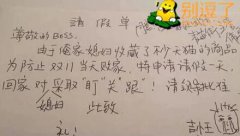 别逗了
请假单
尊敬的BOSS:
由于俺家媳妇收藏了不少天猫的商品
为防止双11当天败家,特申请请假一天,
回家对媳妇采取"盯""关""跟"!请领导批准
此致
礼!